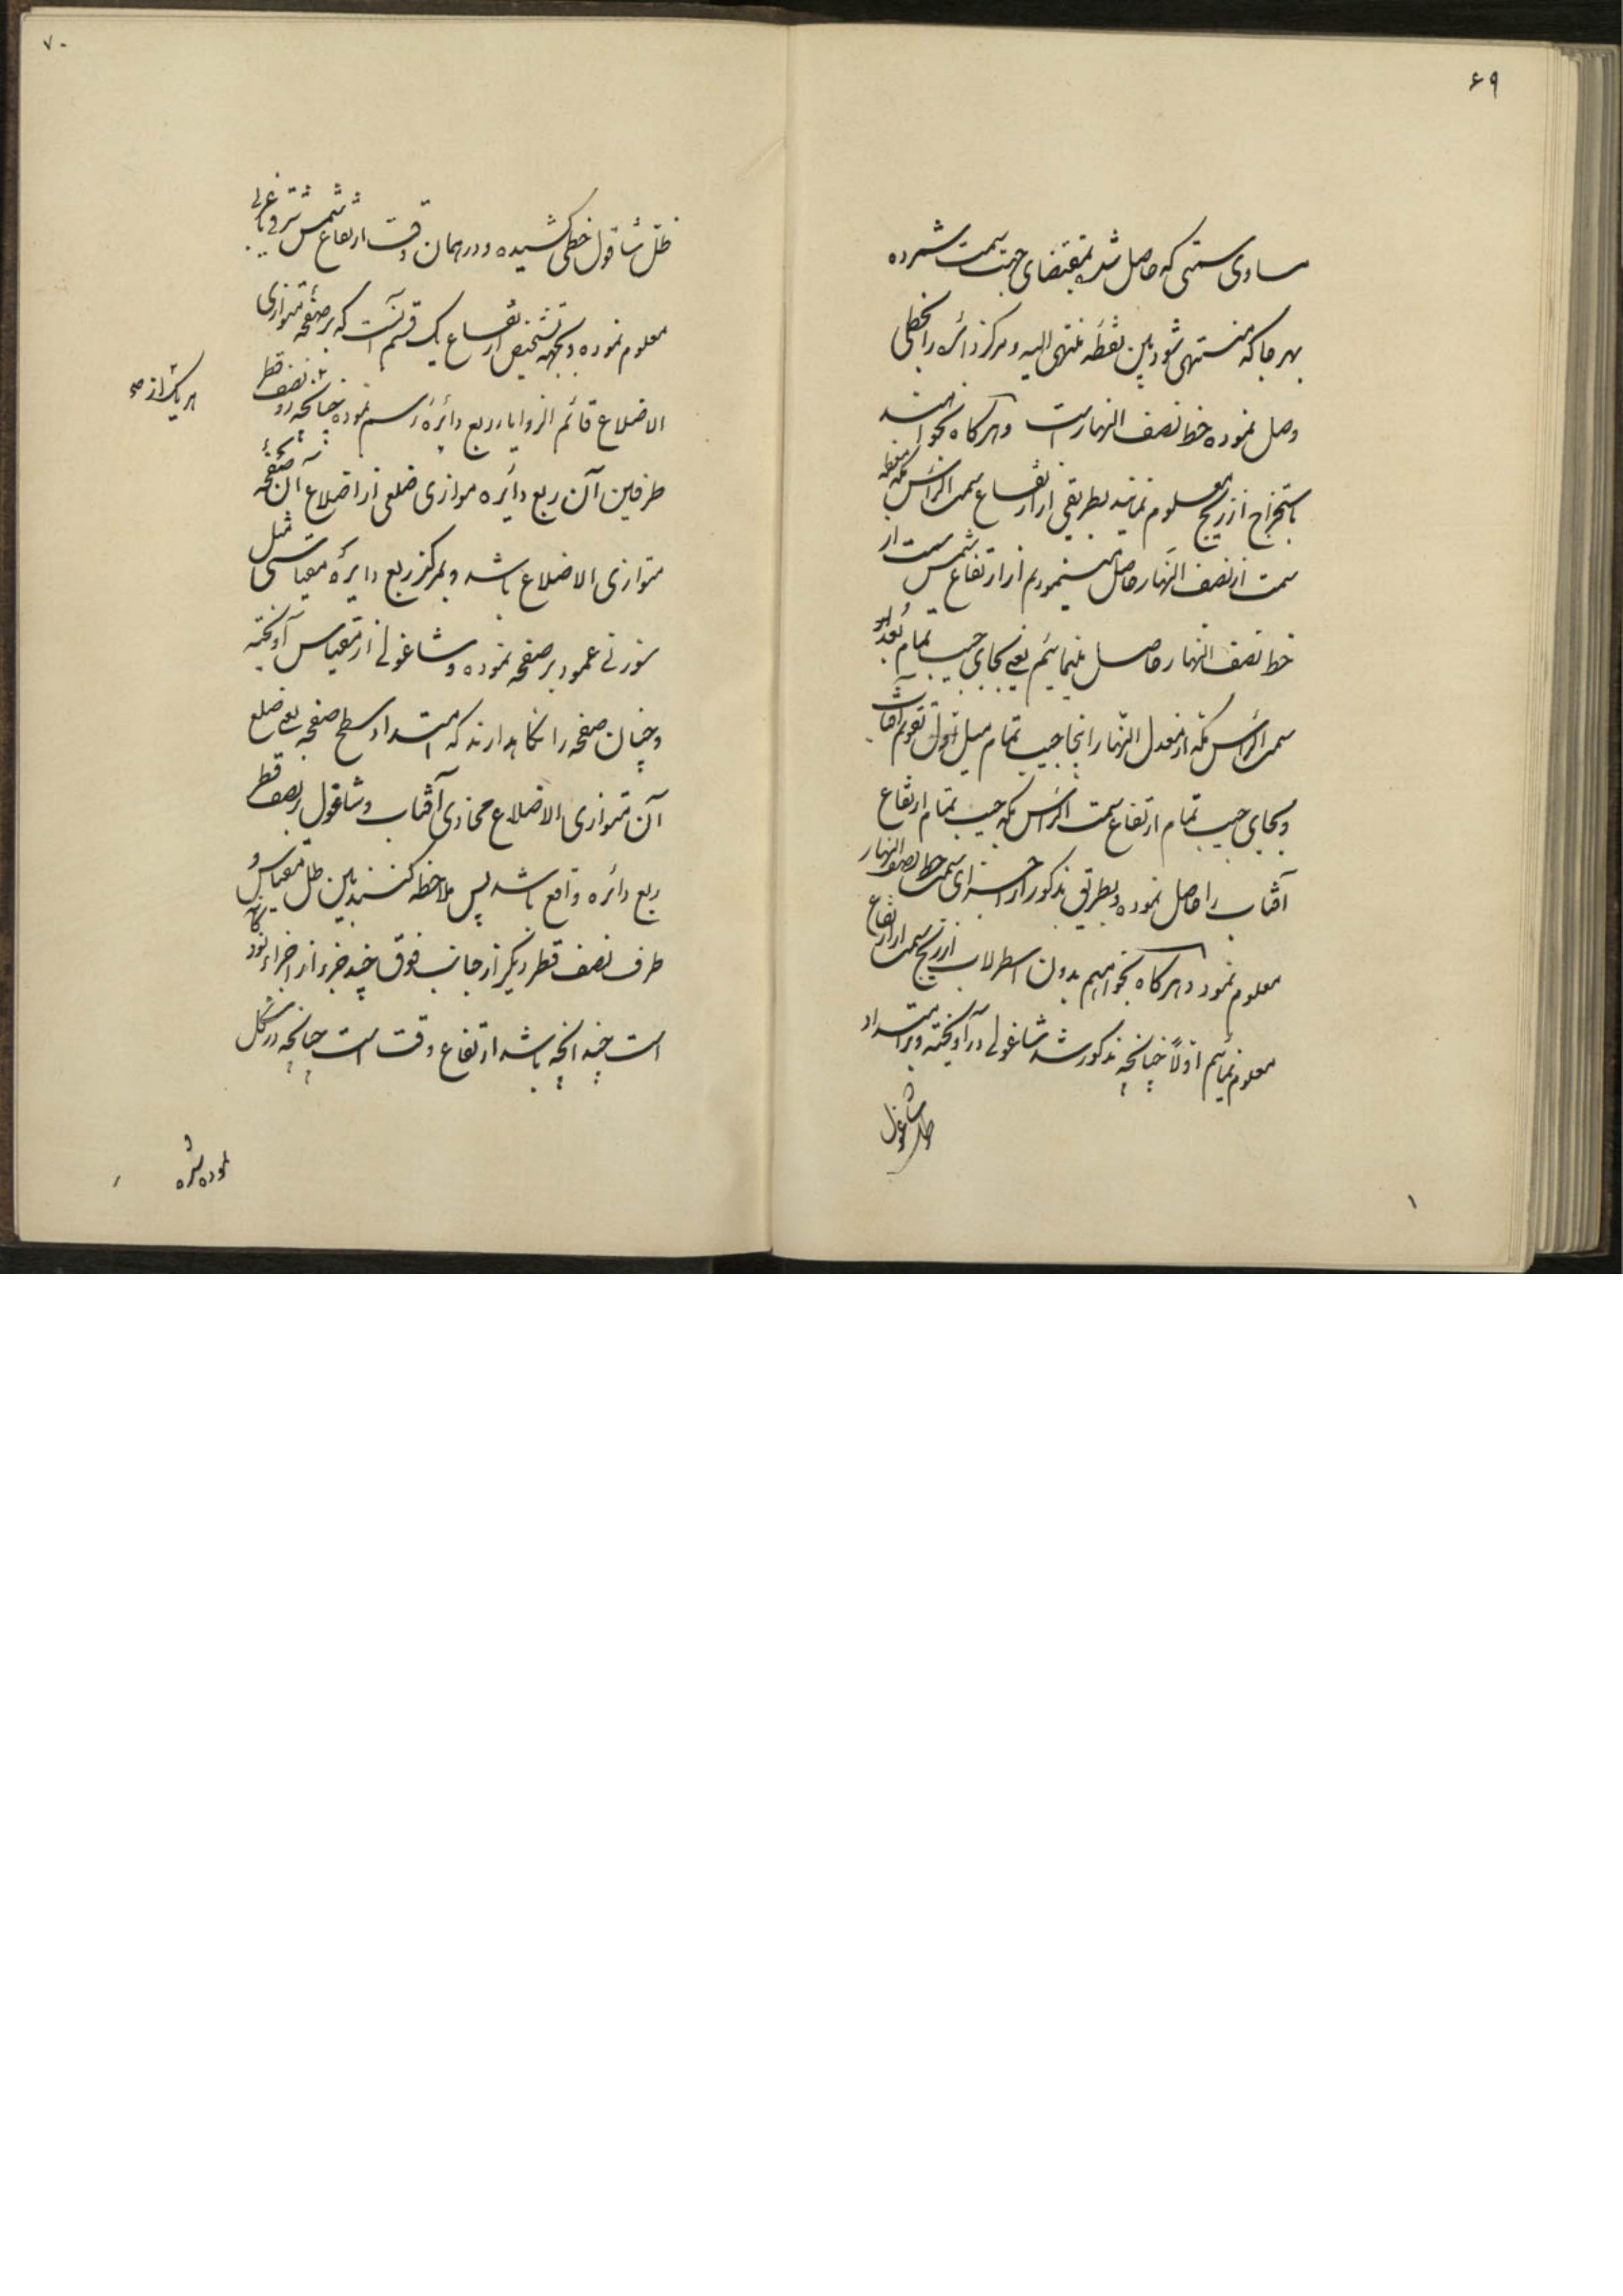 ۶۹
مساوی سمتی که حاصل شد بمقتضای جهت سمت شمرده
بهر جا که منتهی شود بین نقطه منتهی الیه و مرکز دائره را بخطی
وصل نموده خط نصف النهار است و هرگاه بخواهند
باستخراج از زیج معلوم نمایند بطریقی از ارتفاع سمت الراس مکه معظمه
سمت از نصف النهار حاصل مینمودیم از ارتفاع شمس سمت از
خط نصف النهار حاصل مینمائیم یعنی بجای جیب تمام بُعد
سمت الراس مکه از معدل النهار اینجا جیب تمام میل اول تقویم آفتاب
و بجای جیب تمام ارتفاع سمت الراس مکه جیب تمام ارتفاع
آفتاب را حاصل نموده و بطریق مذکور از اجزای سمت خط نصف النهار
معلوم نمود و هرگاه بخواهیم بدون اسطرلاب از زیج سمت از ارتفاع
معلوم نمائیم اولاً چنانچه مذکور شد شاغولی درآویخته و بر امتداد
ظل شاغول
۱
۷۰
ظل شاقول خطی کشیده و در همان وقت ارتفاع شمس شرقی یا غربی
معلوم نموده و بجهة تشخیص ارتفاع یک قسم آنست که بر صفحه متوازی
الاضلاع قائم الزوایا ربع دائرهٔ رسم نموده چنانچه دو نصف قطر
هر یک از
طرفین آن ربع دایره موازی ضلعی از اضلاع آن صفحه
متوازی الاضلاع باشد و بمرکز ربع دایره مقیاسی مثل
سوزنی عمود بر صفحه نموده و شاغولی از مقیاس آویخته
و چنان صفحه را نگاهدارند که امتداد سطح صفحه یعنی ضلع
آن متوازی الاضلاع محاذی آفتاب و شاقول بر نصف قطر
ربع دائره واقع باشد پس ملاحظه کنند بین ظل مقیاس و
طرف نصف قطر دیگر از جانب فوق چند جزء از اجزاء نود گانه
است چندانچه باشد ارتفاع وقت است چنانچه در شکل
نموده شده